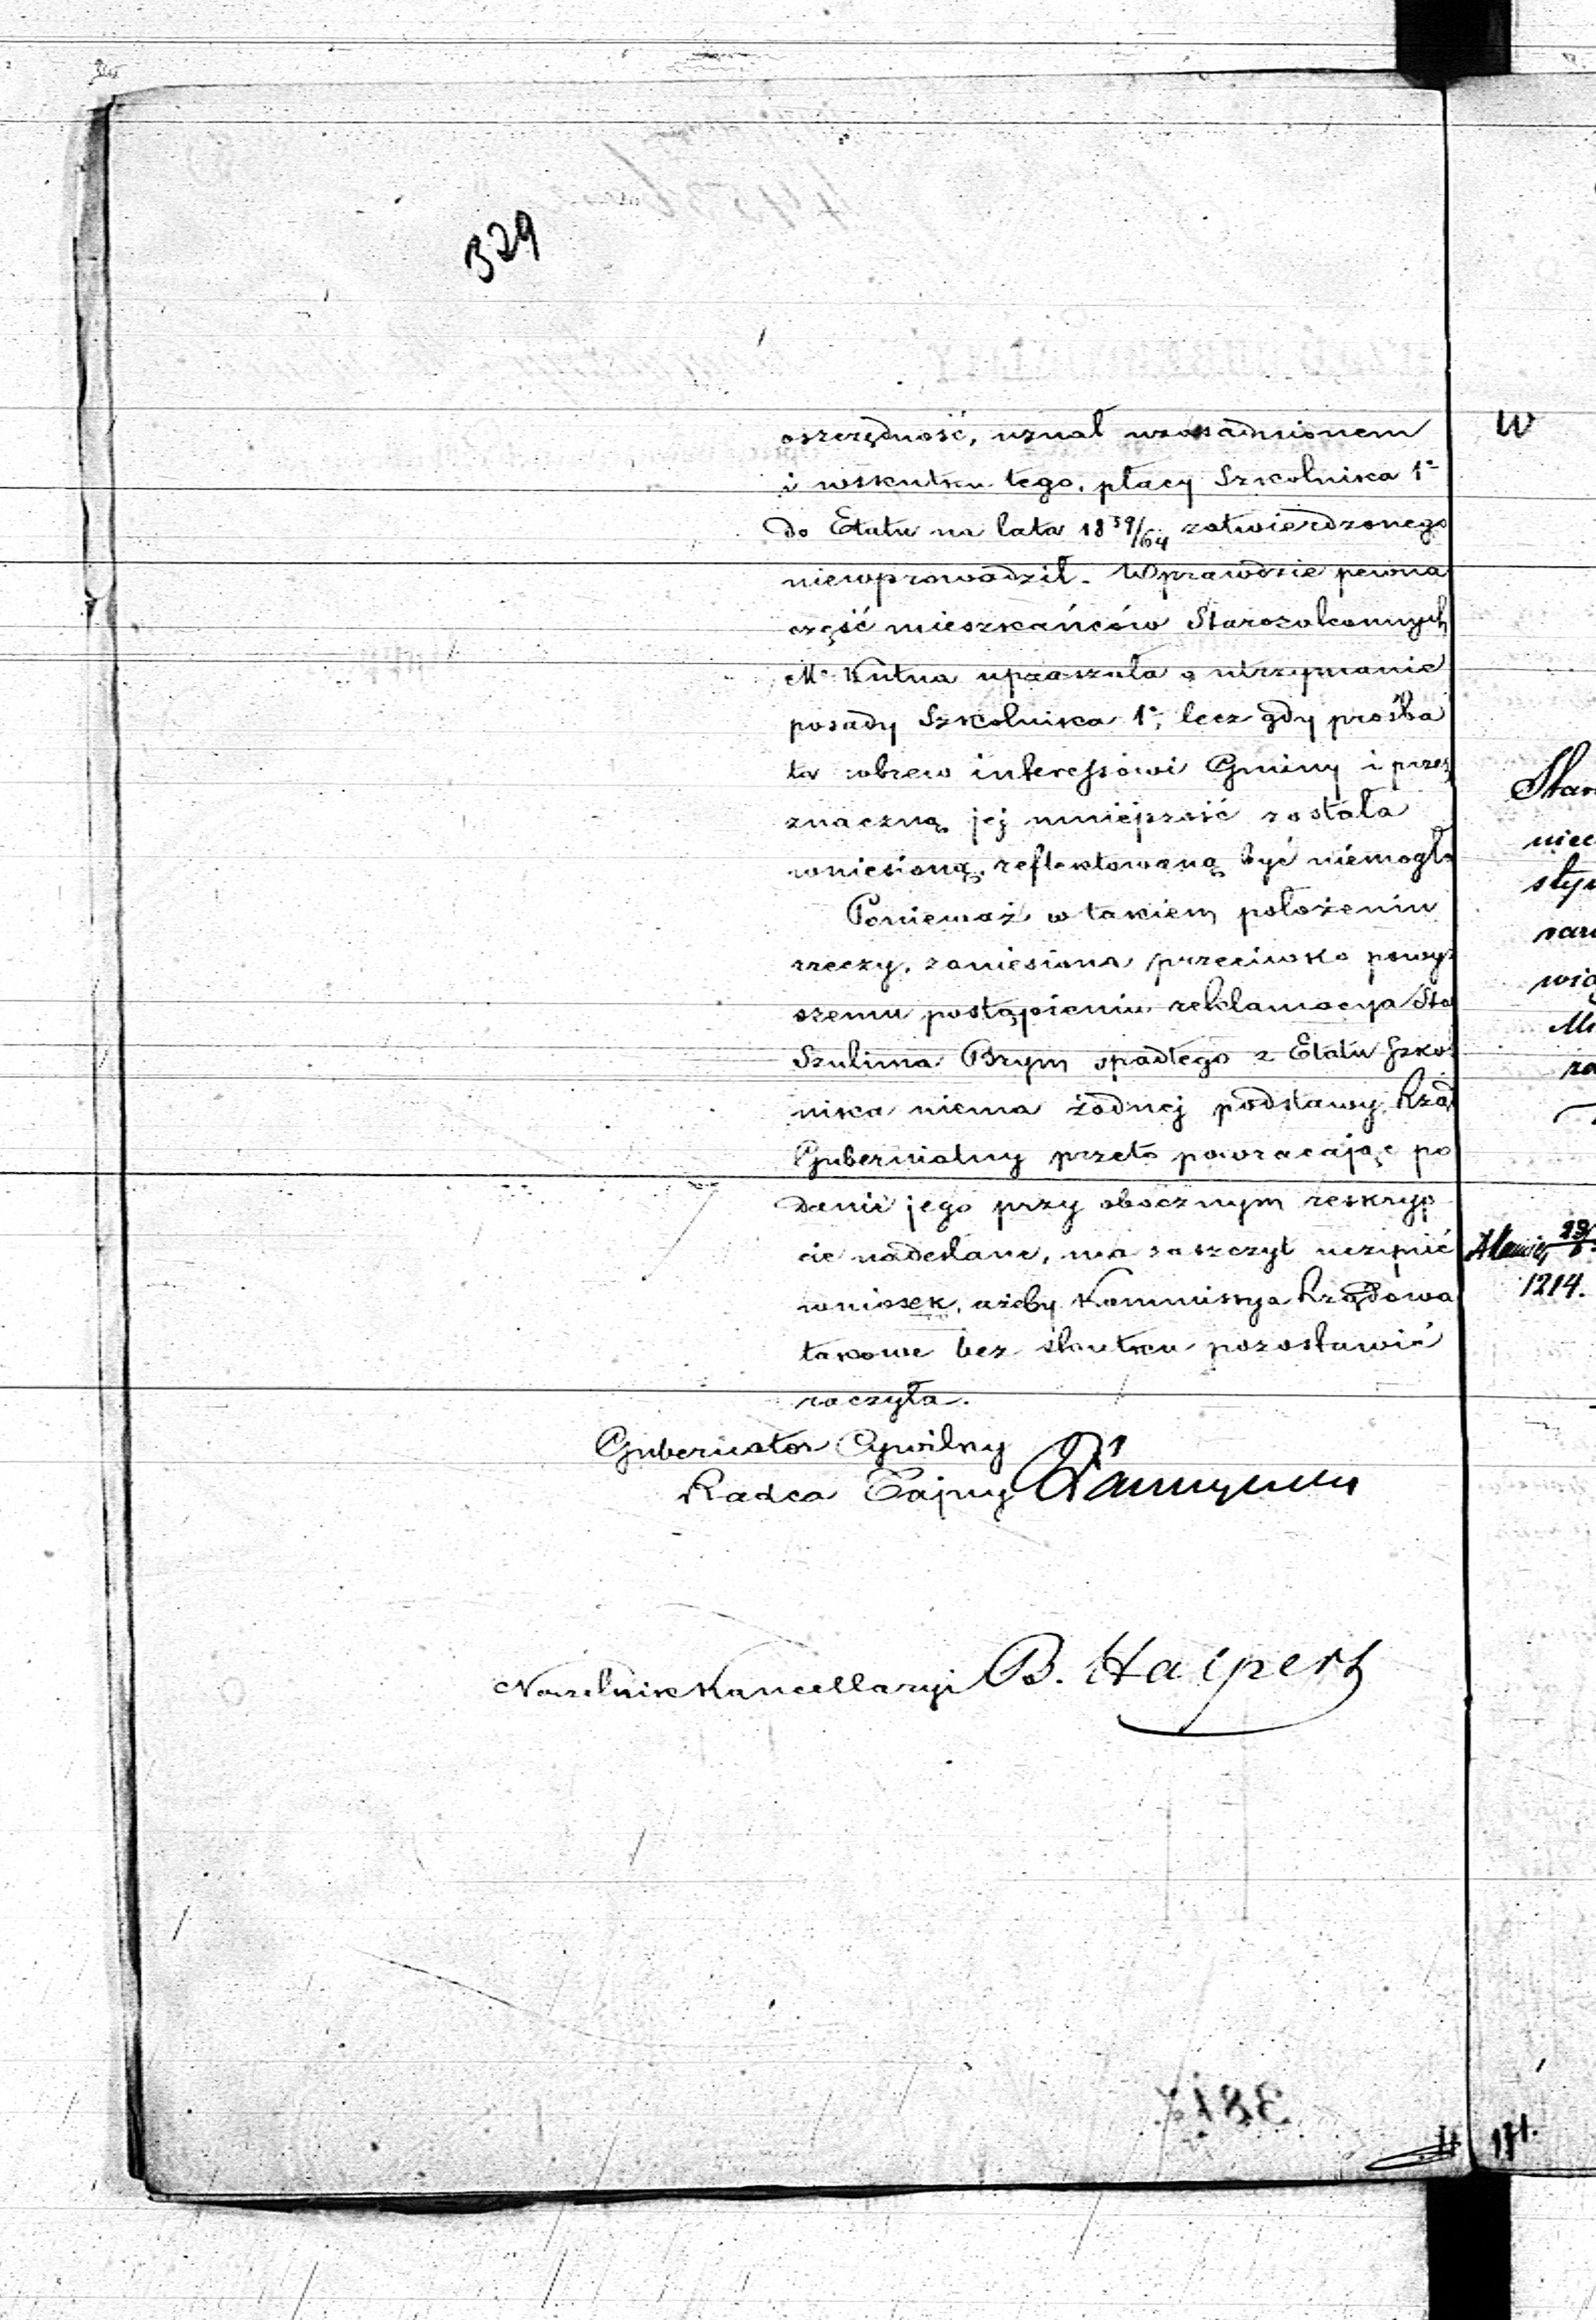 329
oszczędność, uznał uzasadnionem
i wskutku tego, płacy Szkolnika 1º
do Etatu na lata 18 59/64 zatwierdzonego
niewprowadził. Wprawdzie pewna
część mieszkańców Starozakonnych
Mª Kutna upraszała o utrzymanie
posady Szkolnika 1º, lecz gdy prośba
ta wbrew interessowi Gminy i przez
znaczną jej mniejszość została
wniesioną, reflektowaną być niemogła
Ponieważ w takiem położeniu
rzeczy, zaniesiona przeciwko powyż
szemu postąpieniu reklamacya Sta
Szulima Brym spadłego z Etatu Szkol
nika niema żadnej podstawy, Rząd
Gubernialny przeto powracając po
danie jego przy obocznym reskryp
cie nadesłane, ma zaszczyt uczynić
wniosek, ażeby Kommissya Rządowa
takowe bez skutku pozostawić
raczyła.
Gubernator Cywilny
Radca Tajny
Naczelnik Kancellaryi B. Halpert
W
1214.
171.